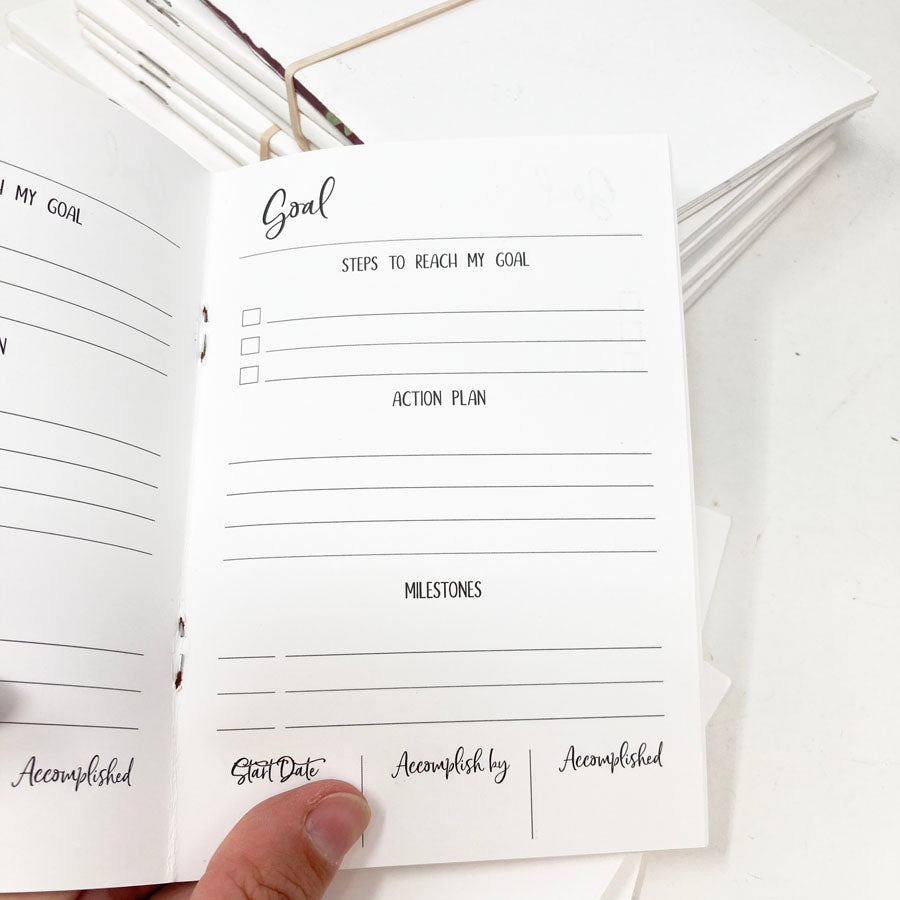 MY GOAL
Accomplished
Goal
STEPS TO REACH MY GOAL
ACTION PLAN
MILESTONES
Start Date
Accomplish by
Accomplished